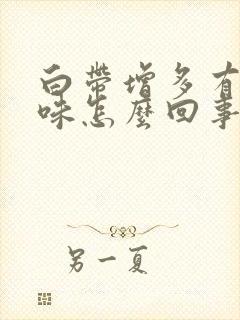 白帶增多有
味怎麼回事
另一夏